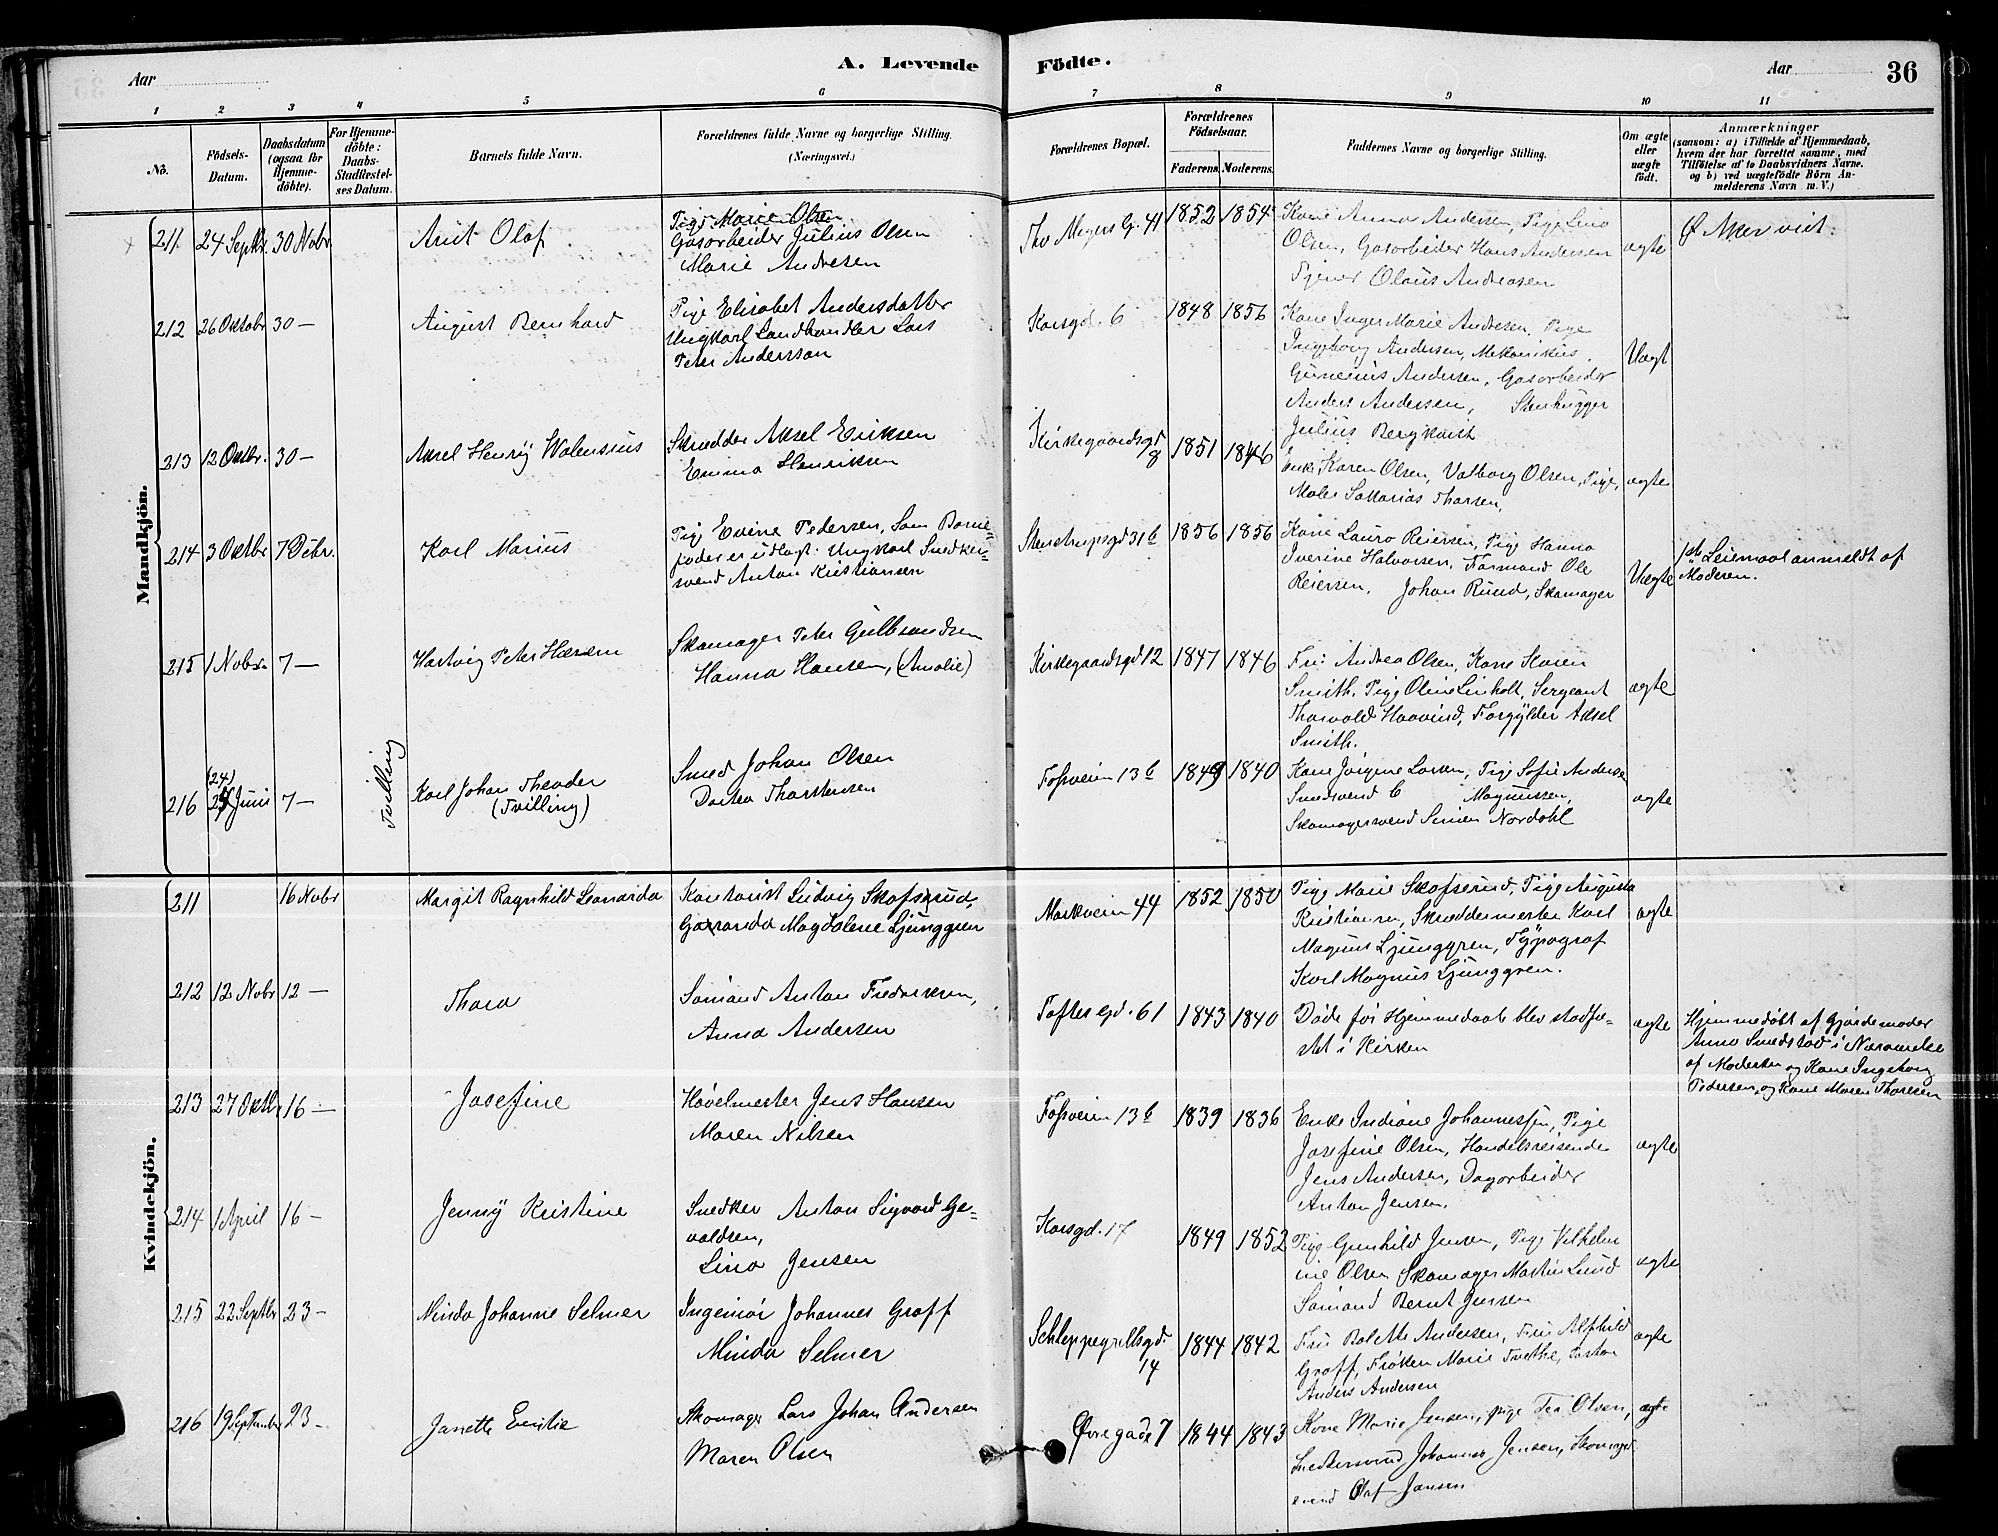 Aar
A. Levende
Födte.
Aar
36
1
2
3
4
5
6
7
8
9
10
11
No.
Födsels-
Datum.
Daabsdatum
(ogsaa for
Hjemme-
döbte).
For Hjemme-
döbte:
Daabs-
Stadfæstel-
ses Datum.
Barnets fulde Navn.
Forældrenes fulde Navne og borgerlige Stilling.
(Næringsvei.)
Forældrenes Bopæl.
Forældrenes
Födselsaar.
Faderens.
Moderens.
Faddernes Navne og borgerlige Stilling.
Om ægte
eller
uægte
födt.
Anmærkninger
(saasom: a) i Tilfælde af Hjemmedaab,
hvem der har forrettet samme, med
Tilföielse af to Daabsvidners Navne.
og b) ved uægtefödte Börn An-
melderens Navn m. V.)
Mandkjön.
211 24 Septbr 30 Nobr Arnt Olaf
Pige Marie Olsen
Gasarbeider Julius Olsen
Marie Andresen
Thv Meyers G. 41 1852 1854
Kone Anna Andersen, Pige Lina
Olsen, Gasarbeider Hans Andersen
Tjener Olaus Andreasen
ægte
Ø Aker viet.
212 26 Oktobr 30 — August Bernhard
Pige Elisabet Andersdatter
Ungkarl Landhandler Lars
Peter Andersson
Korsgd. 6 1848 1856
Kone Inger Marie Andresen, Pige
Ingeborg Andersen, Mekanikus
Gunerius Andersen, Gasarbeider
Anders Andersen, Stenhugger
Julius Bergkvist
Uægt
213 12 Oktbr. 30 — Aksel Henry Walensius
Skrædder Aksel Eriksen
Emma Henriksen
Kirkegaardsgd 8 1851 1846
Enke Karen Olsen, Valborg Olsen, Pige,
Maler Sakarias Thorsen,
ægte
214 3 Oktbr 7 Debr. Karl Marius
Pige Evine Pedersen, Som Barne-
fader er udlagt: Ungkarl Snedker-
svend Anton Kristiansen
Stenstrupsgd 31 b 1856 1856
Kone Laura Reiersen, Pige Hanna
Iverine Halvorsen, Formand Ole
Reiersen, Johan Ruud, Skomager
Uægte
1ste Leiemaal anmeldt af
Moderen.
215 1 Nobr. 7 — Hartvig Peter Hansen
Skomager Peter Gulbrandsen
Hanna Hansen, (Amalie)
Kirkegaardsgd 12 1847 1846
Fru Andrea Olsen, Kone Karen
Smith. Pige Oline Linholt, Sergeant
Thorvald Haavind, Forgylder Aksel
Smith.
ægte
216 (24) Juni 7 — Tvilling Karl Johan Theodor
(Tvilling)
Smed Johan Olsen
Dortea Thorstensen
Fossveien 13 b 1849 1840
Kone Jørgine Larsen, Pige Sofie Andersen
Smedsvend C Magnussen,
Skomagersvend Simen Nordahl
ægte
Kvindekjön.
211 16 Nobr Margit Ragnhild Leonarda
Kontorist Ludvig Skofsrud,
Magdalene Ljunggren
Markveien 44 1852 1850
Pige Marie Skofsrud, Pige Augusta
Kristiansen, Skræddermester Karl
Magnus Ljunggren, Typograf
Karl Magnus Ljunggren.
ægte
212 12 Nobr 12 — Thora
Sømand Anton Fredriksen,
Anna Andersen
Toftes Gd. 61 1843 1840
Døde før Hjemmedaab blev stadfæ-
stet i Kirken
ægte
Hjemmedøbt af Gjordemoder
Anna Smedstad i Nærværelse
af Moderen og Kone Ingeborg
Pedersen, og Kone Maren Thoresen
213 27 Oktbr 16 — Josefine
Høvelmester Jens Hansen
Maren Nilsen
Fossveien 13 b 1839 1836
Enke Indiane Johannessen, Pige
Josefine Olsen, Handelsreisende
Jens Andersen, Dagarbeider
Anton Jensen.
ægte
214 1 April 16 — Jenny Kristine
Snedker Anton Sigvard Ge-
valdsen,
Lina Jensen
Korsgd. 17 1849 1852
Pige Gunhild Jensen, Pige Vilhelm
ine Olsen Skomager Martin Lund
Sømand Bernt Jensen
ægte
215 22 Septbr 23 — Minda Johanne Selmer
Ingeniør Johannes Graff
Minda Selmer
Schleppegrellsgd. 14 1844 1842
Fru Bolette Andersen, Fru Alfhild
Graff, Frøken Marie
Anders Andersen
ægte
216 19 September 23 — Janette Emilie
Skomager Lars Johan Andersen
Maren Olsen
Øvregade 7 1844 1843
Kone Marie Jensen, pige Fia Olsen,
Snedkersvend Johannes Jensen, Skomager
svend Olaf Jansen
ægte